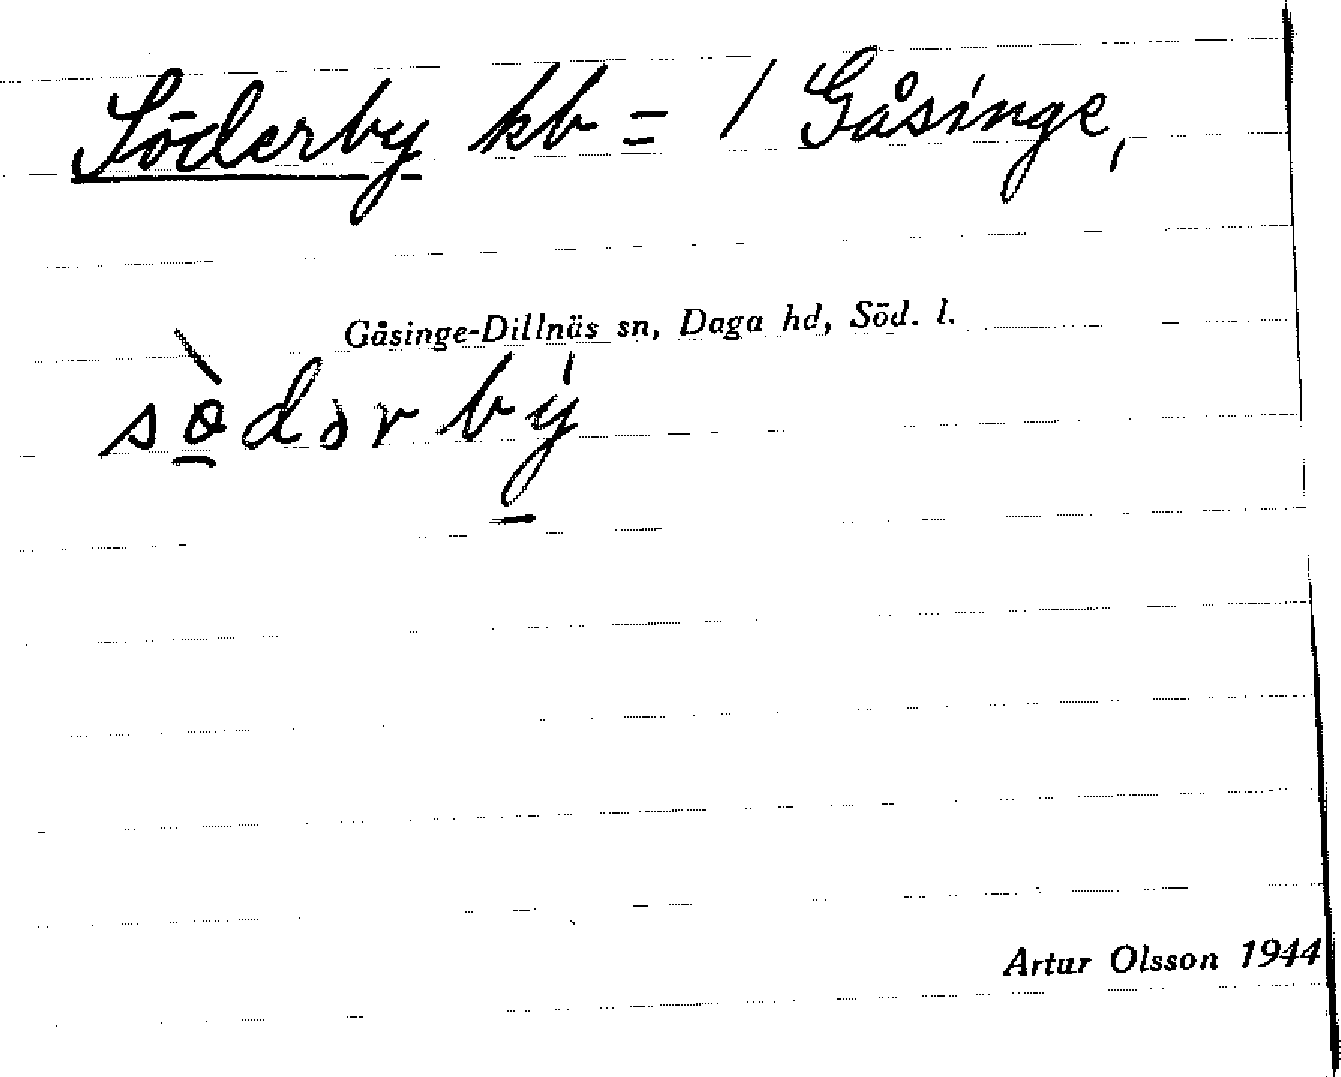 Söderby kb = / Gåsinge,
Gåsinge-Dillnäs sn, Daga hd, Söd. l.
sø̀dər bý
Artur Olsson 1944